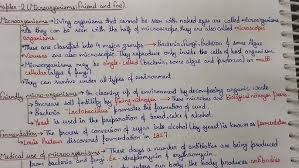 Chapter-2 (Microorganisms: Friend and Foe)
Microorganisms → Living organisms that cannot be seen with naked eyes are called microorganisms
→ As they can be seen with the help of microscope they are also called microscopic
organisms
→ These are classified into 4 major groups → Bacteria, Fungi, Protozoa & some algae
→ Viruses are also microscopic. They reproduce only inside the cells of organism
→ Microorganisms may be single-celled (Bacteria, some algae & protozoa) or multi-
cellular (algae & fungi)
→ They can survive under all types of environment.
Friendly microorganisms → In cleaning up of environment by decomposing organic waste
→ Increase soil fertility by fixing nitrogen. These microbes are biological nitrogen fixers
→ Bacteria 'Lactobacillus' promotes the formation of curd.
→ Yeast is used in the preparation of bread, cake & alcohol.
Fermentation → The process of conversion of sugar into alcohol (by yeast) is known as fermentation
→ Louis Pasteur discovered fermentation in 1857
Medical use of microorganisms → These days a number of antibiotics are being produced